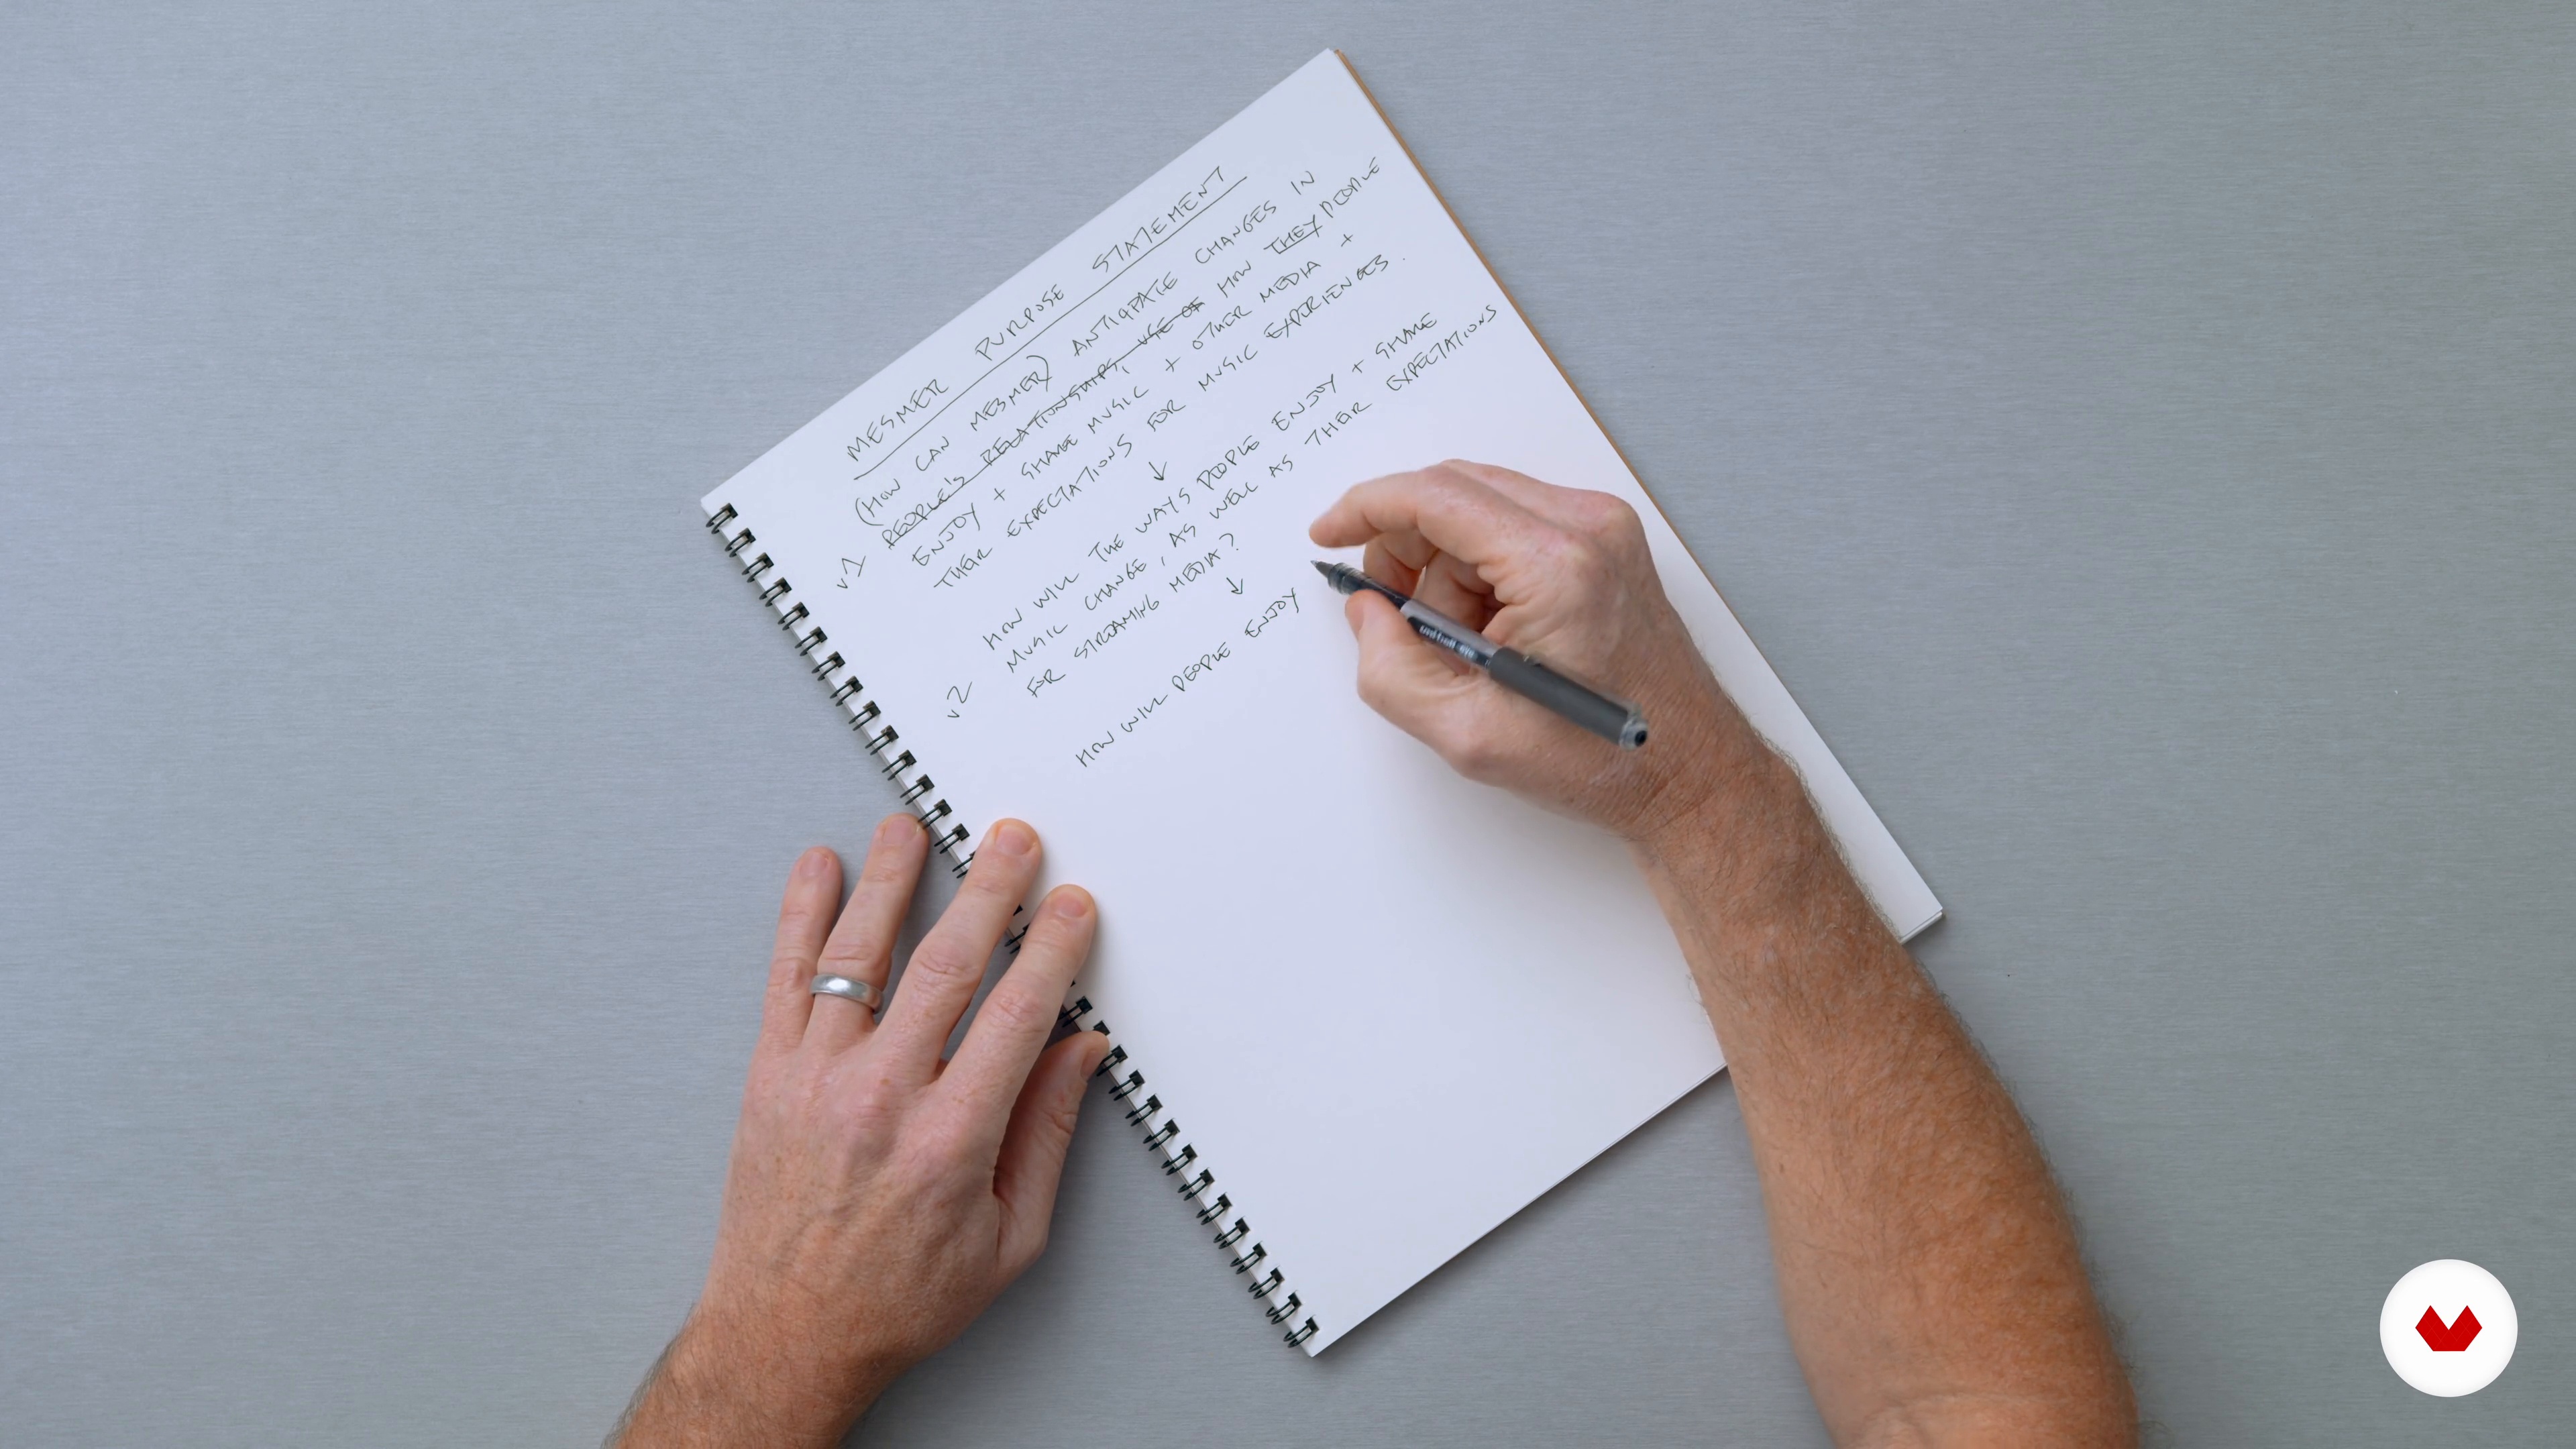 MESMER PURPOSE STATEMENT
(HOW CAN MESMER) ANTICIPATE CHANGES IN
v1 PEOPLE'S RELATIONSHIPS, USE OF HOW THEY PEOPLE
ENJOY + SHARE MUSIC + OTHER MEDIA +
THEIR EXPECTATIONS FOR MUSIC EXPERIENCES.
↓
HOW WILL THE WAYS PEOPLE ENJOY + SHARE
v2 MUSIC CHANGE, AS WELL AS THEIR EXPECTATIONS
FOR STREAMING MEDIA?
↓
HOW WILL PEOPLE ENJOY